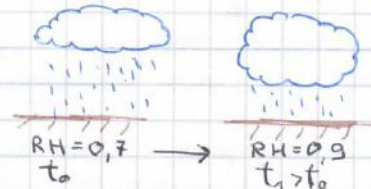 RH=0,7 → RH=0,9
t₀ t₁>t₀